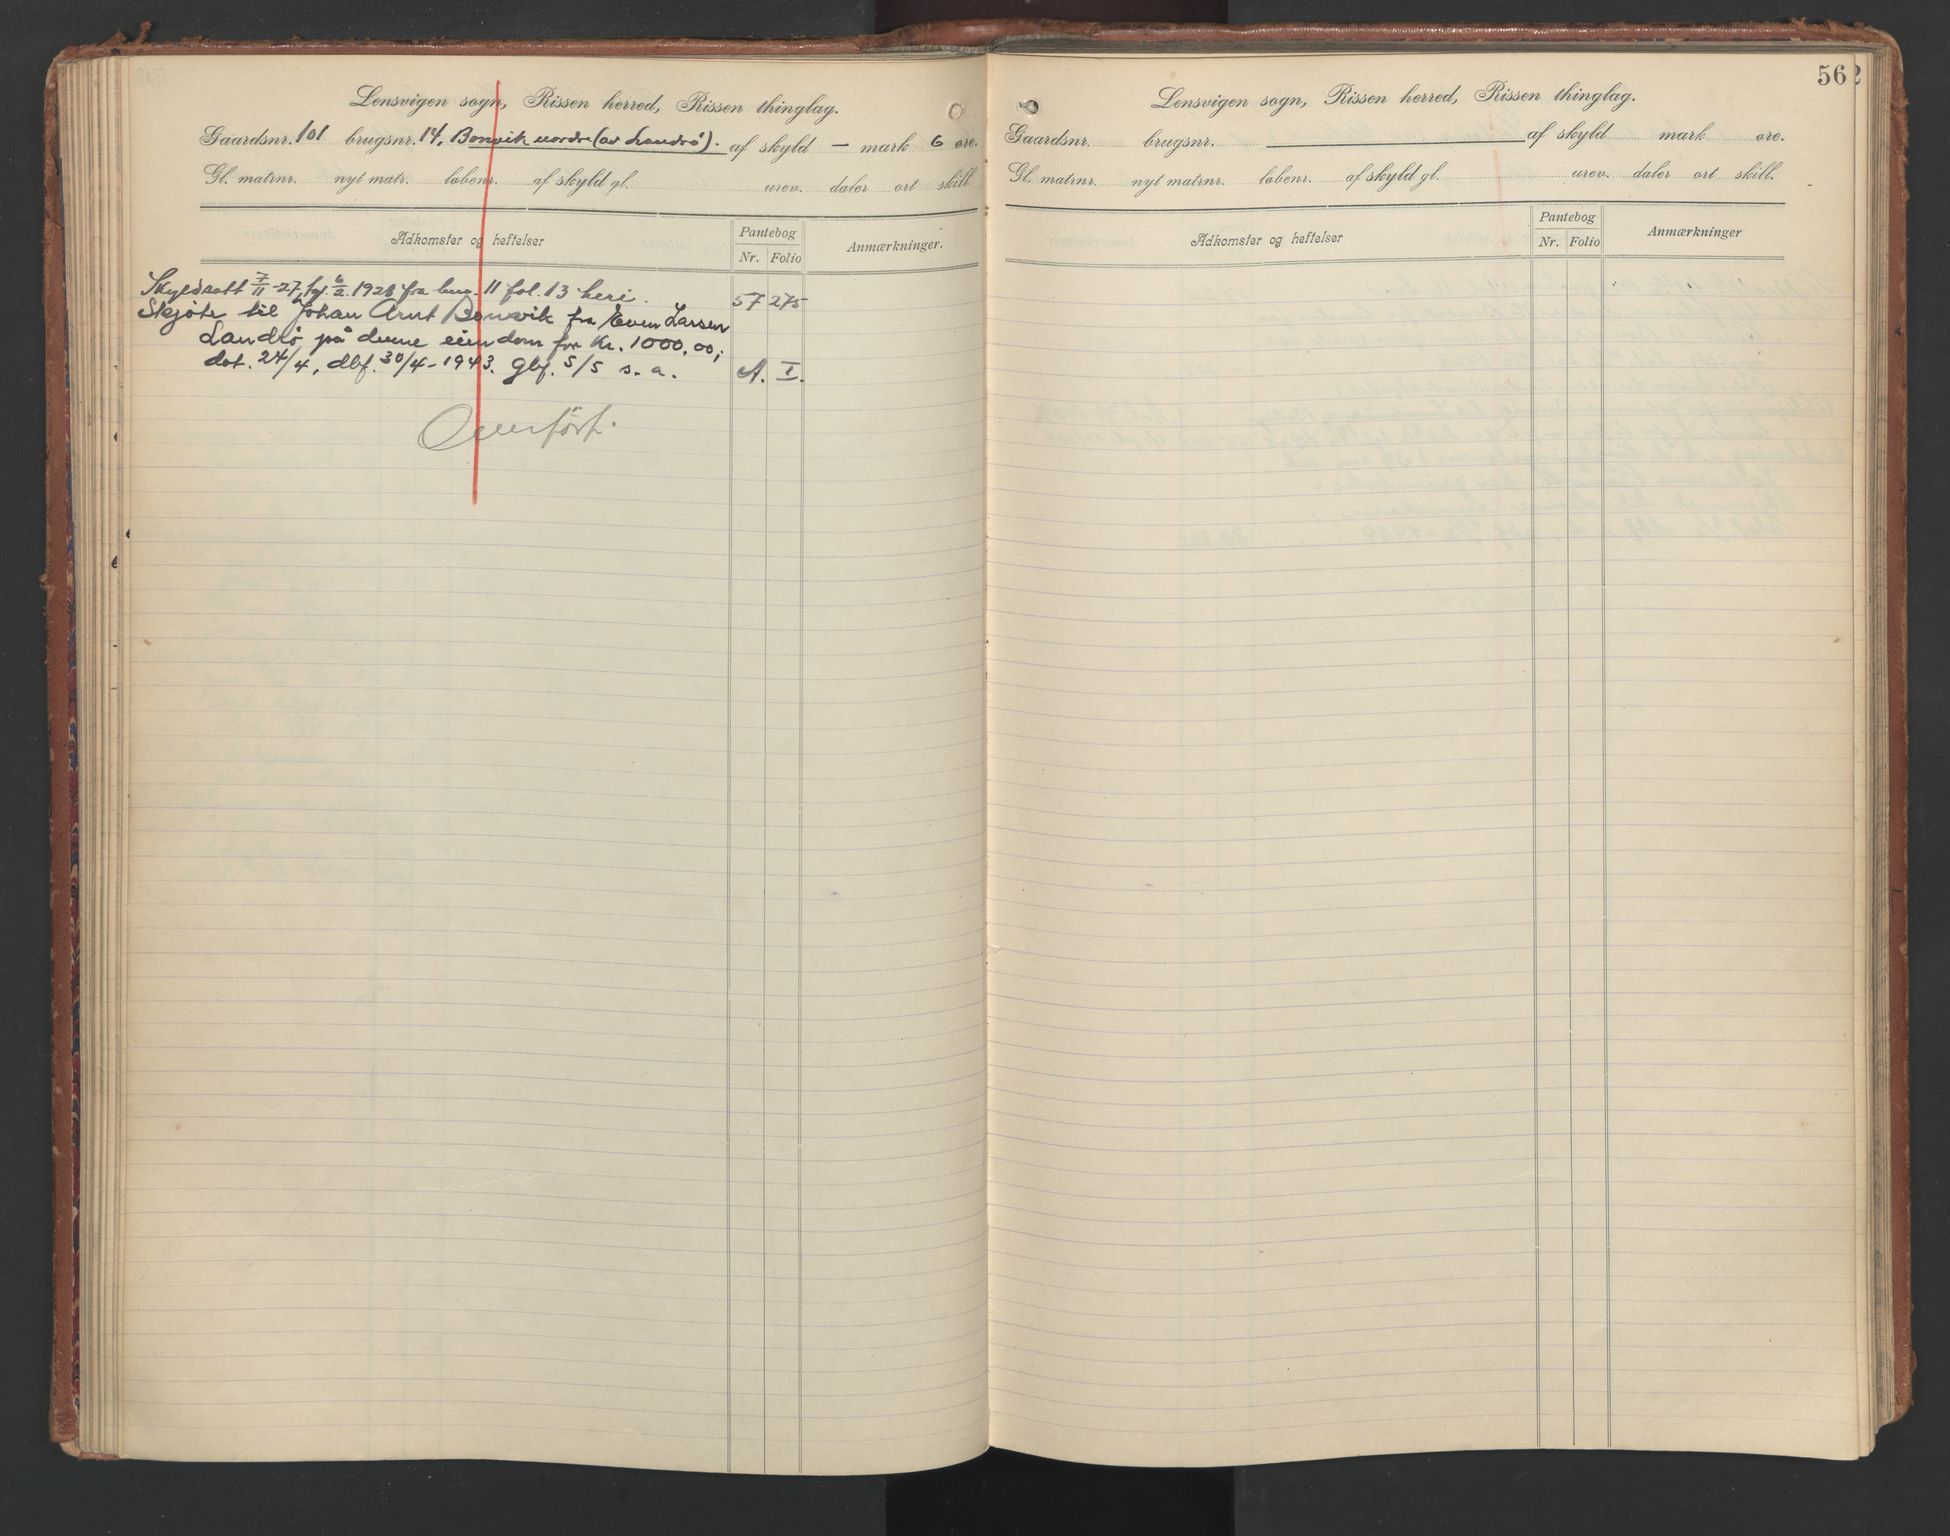 Lensvigen sogn, Rissen herred, Rissen thinglag.
Gaardsnr. 101 brugsnr. 14, Bonvik nordre (av Landrö). af skyld — mark 6 øre.
Gl. matrnr. nyt matr. løbenr. af skyld gl. urev. daler ort skill
Adkomster og heftelser Pantebog Nr. Folio Anmærkninger.
Skyldsatt 7/11-27, tgl. 6/2 1928 fra brn. 11 fol. 13 heri. 57 275
Skjöte til Johan Arnt Bonvik fra Even Larsen
Landrö på denne eiendom for Kr. 1000,00;
dat. 24/4, dbf. 30/4-1943. Gbf. 5/5 s. a. A. I.
Overført.
562
Lensvigen sogn, Rissen herred, Rissen thinglag.
Gaardsnr. brugsnr. af skyld mark øre.
Gl. matrnr. nyt matrnr. løbenr. af skyld gl. urev. daler ort skill.
Adkomster og heftelser Pantebog Nr. Folio Anmærkninger